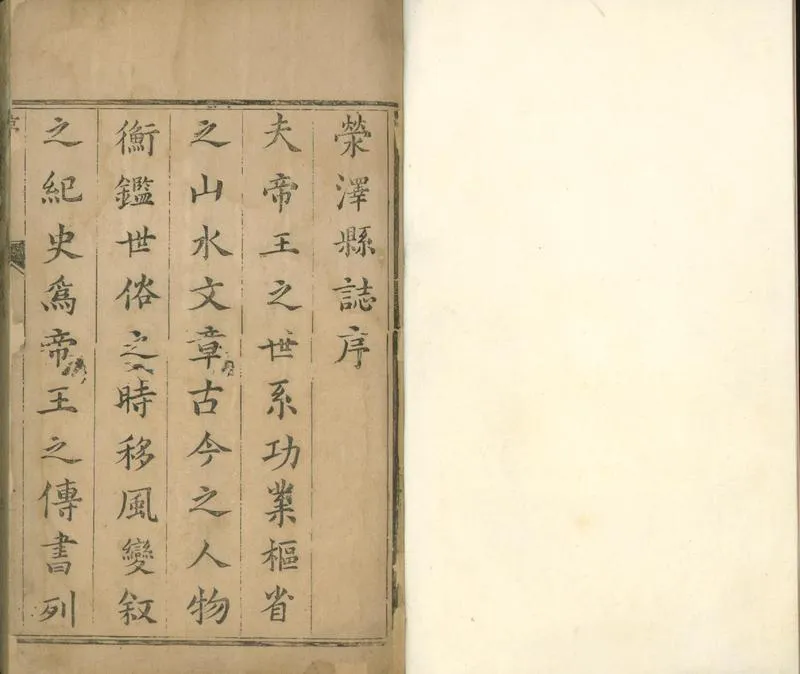 滎澤縣誌序
夫帝王之世系功業樞省
之山水文章古今之人物
衡鑑世俗之時移風變叙
之紀史爲帝王之傳書列